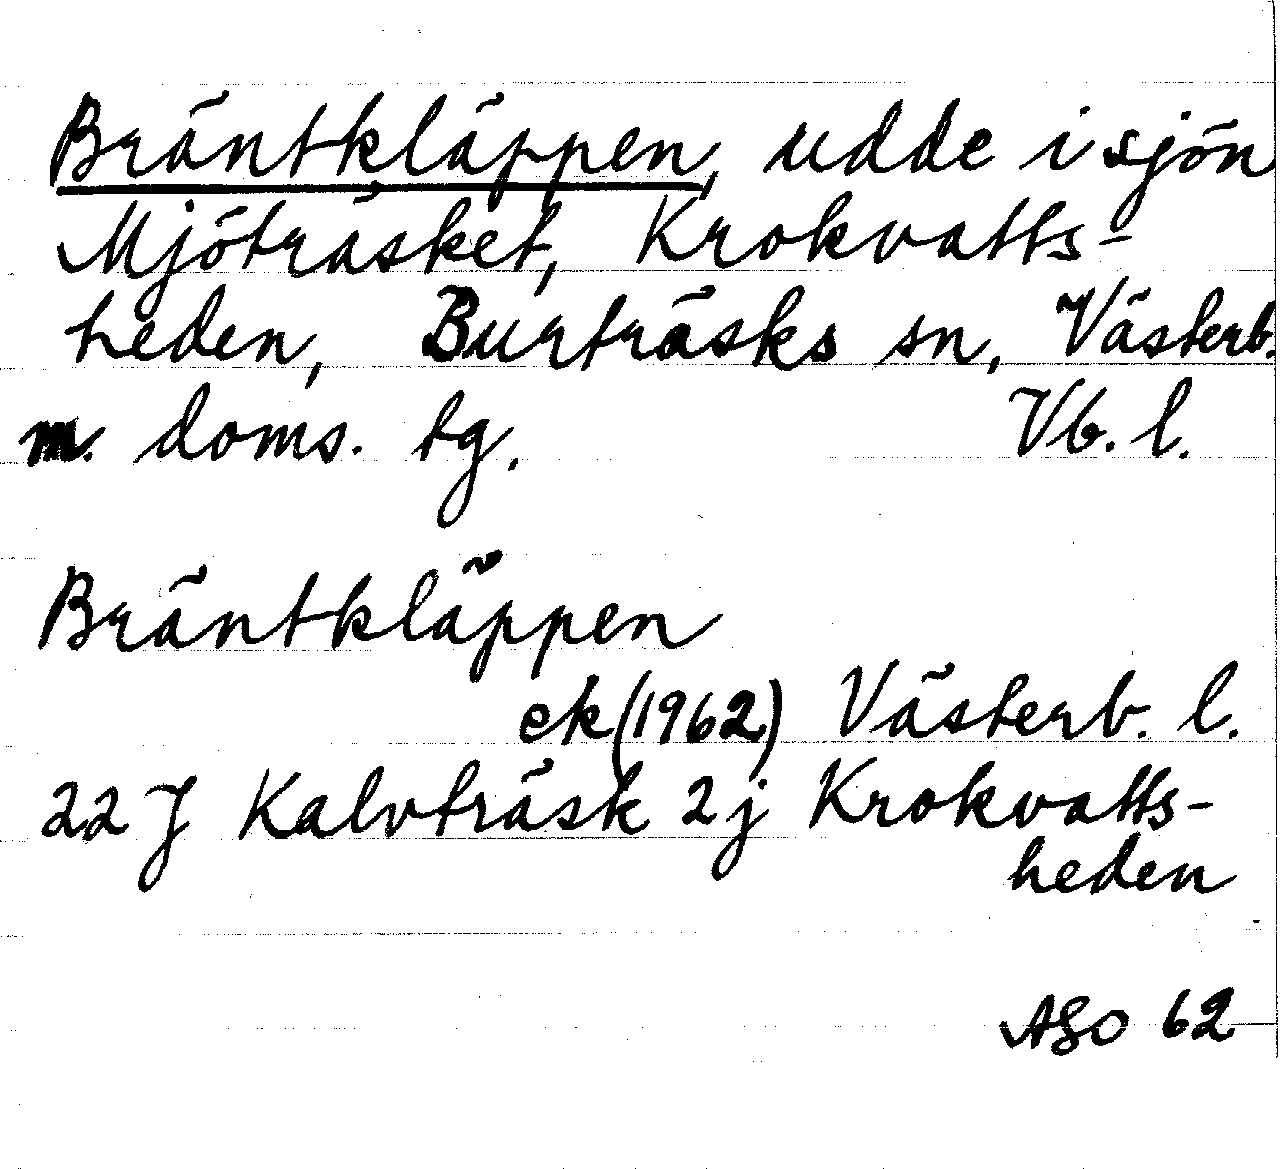 Bräntkläppen, udde i sjön
Mjöträsket, Krokvatts-
heden, Burträsks sn, Västerb.
m. doms. tg. Vb. l.
Bräntkläppen
ek (1962) Västerb. l.
22 J Kalvträsk 2j Krokvatts-
heden
ASO 62